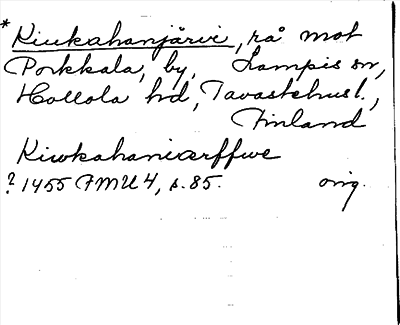 * Kiukahanjärvi, rå mot
Porkkala, by, Lampis sn,
Hollola hd, Tavastehusl.,
Finland
Kiwkahaniærffwe
? 1455 FMU 4, s. 85. orig.